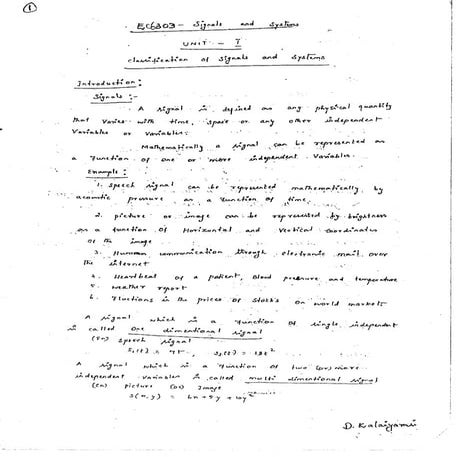 ①
EC6303 - Signals and Systems
UNIT - I
Classification of Signals and Systems
Introduction:
Signals:-
A signal is defined as any physical quantity
that varies with time, space or any other independent
Variable or variables.
Mathematically a signal can be represented as
a function of one or more independent variables.
Example:
1. Speech signal can be represented mathematically by
acoustic pressure as a function of time.
2. picture or image can be represented by brightness
as a function of Horizontal and vertical coordinates
of the image
3. Human communication through electronic mail over
the internet
4. Heartbeat of a patient, Blood pressure and temperature
5. weather report
6. Fluctions in the prices of stocks on world markets
A signal which is a function of single independent
is called one dimentional signal
(Ex) speech signal
S₁(t) = 4t, S₂(t) = 13t²
A signal which is a function of two (or) more
independent variables is called multi dimentional signal
(Ex) picture (or) Image
S(x,y) =
D. Kalaiyarasi